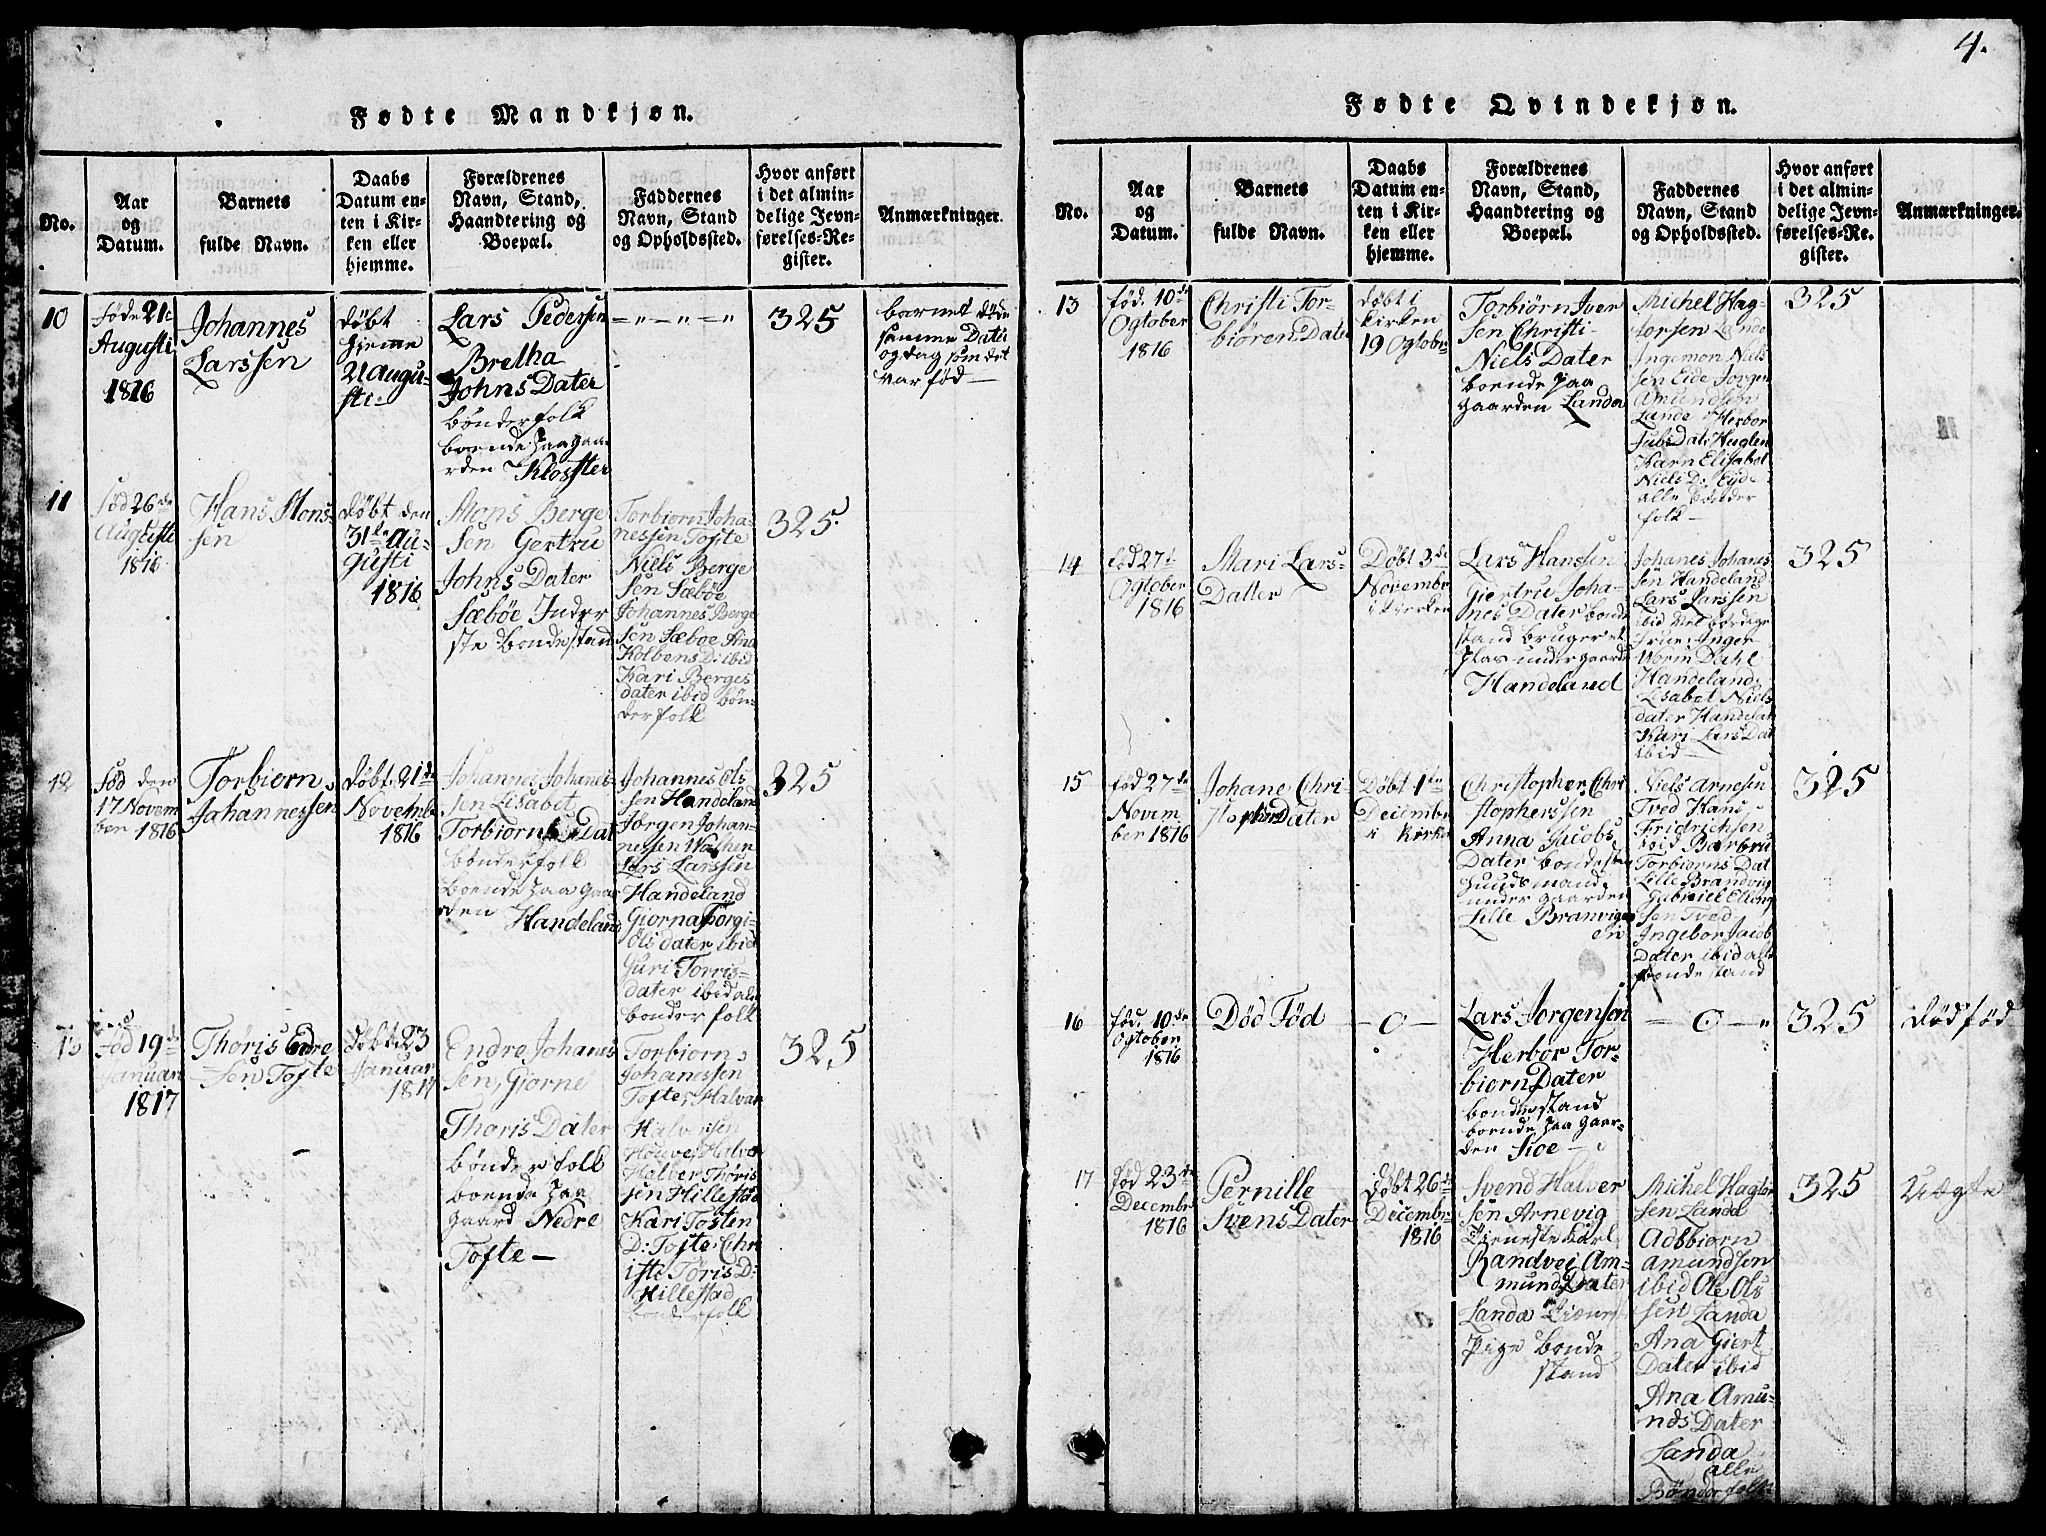 4.
Fødte Mandkjøn.
No.
Aar
og
Datum.
Barnets
fulde Navn.
Daabs
Datum en-
ten i Kir-
ken eller
hjemme.
Forældrenes
Navn, Stand,
Haandtering og
Boepæl.
Faddernes
Navn, Stand
og Opholdssted.
Hvor anført
i det almin-
delige Jevn-
førelses-Re-
gister.
Anmærkninger.
10
føde 21
Augusti
1816
Johannes
Larssen
døbt
hjeme
21 augu-
sti
Lars Pedersen
Bretha
Johns Dater
bønderfolk
boende paa gaa
rden Kloster
325
barnet døde
samme Dato
og dag som det
var fød
11
fød 26de
Augusti
1816
Hans Mons-
sen
døbt den
31te Au-
gusti
1816
Mons Berge
sen Gertru
Johns Dater
Sæbøe Inder
ste bondestand
Torbiørn Joha-
nessen Tofte
Niels Berge
sen Sæbøe
Johannes Berge
sen Sæbøe Ana
Kolbens D: ibid
Kari Berges
dater ibid bøn-
derfolk
325.
12
fød den
17 Novem
ber 1816
Torbiørn
Johannessen
døbt 21de
Novemb
1816
Johannes Johanes-
sen Lisabet
Torbiørns Dat
bønderfolk
boende paa gaa
rden Handeland
Johannes Ols
sen Handeland
Jørgen Johan-
nessen
Lars Larssen
Handeland
Giorna Torgi-
Ols dater ibid
Guri Torris-
dater ibid alle
bonderfolk
325
13
fød 19de
Januari
1817
Thoris Endre
Sen Tofte
døbt 23
Januar
1817
Endre Johanes
sen, Giorne
Thoris Dater
bønderfolk
boende paa
gaard Nedre
Tofte
Torbiørn
Johanessen
Tofte, Halvar
Halversen
Halver Thoris
sen Hillestad
Kari Tosten
D: Tofte, Chr
iste Toris D:
Hillestad
bonderfolk
325
Fødte Qvindekjøn.
No.
Aar
og
Datum.
Barnets
fulde Navn.
Daabs
Datum en-
ten i Kir-
ken eller
hjemme.
Forældrenes
Navn, Stand,
Haandtering og
Boepæl.
Faddernes
Navn, Stand
og Opholdssted.
Hvor anført
i det almin-
delige Jevn-
førelses-Re-
gister.
Anmærkninger.
13
fød. 10de
Ogtober
1816
Christi Tor-
biøren Dater
døbt i
kirken
19 Ogtober
Torbiørn Iver
sen Christi-
Niels Dater
boende paa
gaarden Landa
Michel Hag-
torsen Landa
Ingemon Niels
sen Eide Jørgen
Amundsen
Lande Herbor
Huglen
Karn Elisabet
Niels D: Eyde
alle bønder
folk
325
14
fød 27de
Ogtober
1816
Mari Lars-
Datter
Døbt 3de
Novembr
i kierken
Lars Hanssen
Giertru Joha-
nes Dater bonde
stand bruger et
plas under gaarde
Handeland
Johanes Johanes
sen Handeland
Lars Larssen
ibid
frue Inger
Worin Dahl
Handeland
Lisabet Niels
dater Handelan
Kari Lars Dat
ibid
325
15
fød 27de
Novem
ber 1816
Johane Chri-
stophers Dater
Døbt 1te
Decembr
i kirke
Christopher Chri
stopherssen
Anna Jacobs
Dater bondest
huusmand
under gaarden
Lille Branvigen
Niels Arnesen
Tved Hans
Fridrichsen
ibid Barbru
Torbiørns Dat
Lille Brandvig
Gabriel Elling
sen Tved
Ingebor Jacob
Dater ibid alle
bonde stand
325
16
fød. 10de
Ogtober
1816
Død Fød
Lars Jorgensen
Herbor Tor-
biørn Dater
bondestand
boende paa gaar-
den Sioe
325
dødfød
17
fød 23de
Decembr
1816
Pernille
Svens Dater
Døbt 26de
Decembr
1816
Svend Halver
sen Arnevig
tieneste Karl
Randvei Am-
mund Dater
Landa Tiene
Pige bonde
stand
Michel Hagtor
sen Landa
Adsbiørn
Amundsen
ibid Ole Ols
sen Landa
Ana Giert
Dater ibid
Ana Amu-
nds Dater
Landa
alle
Bønderfolk
325
Uægte